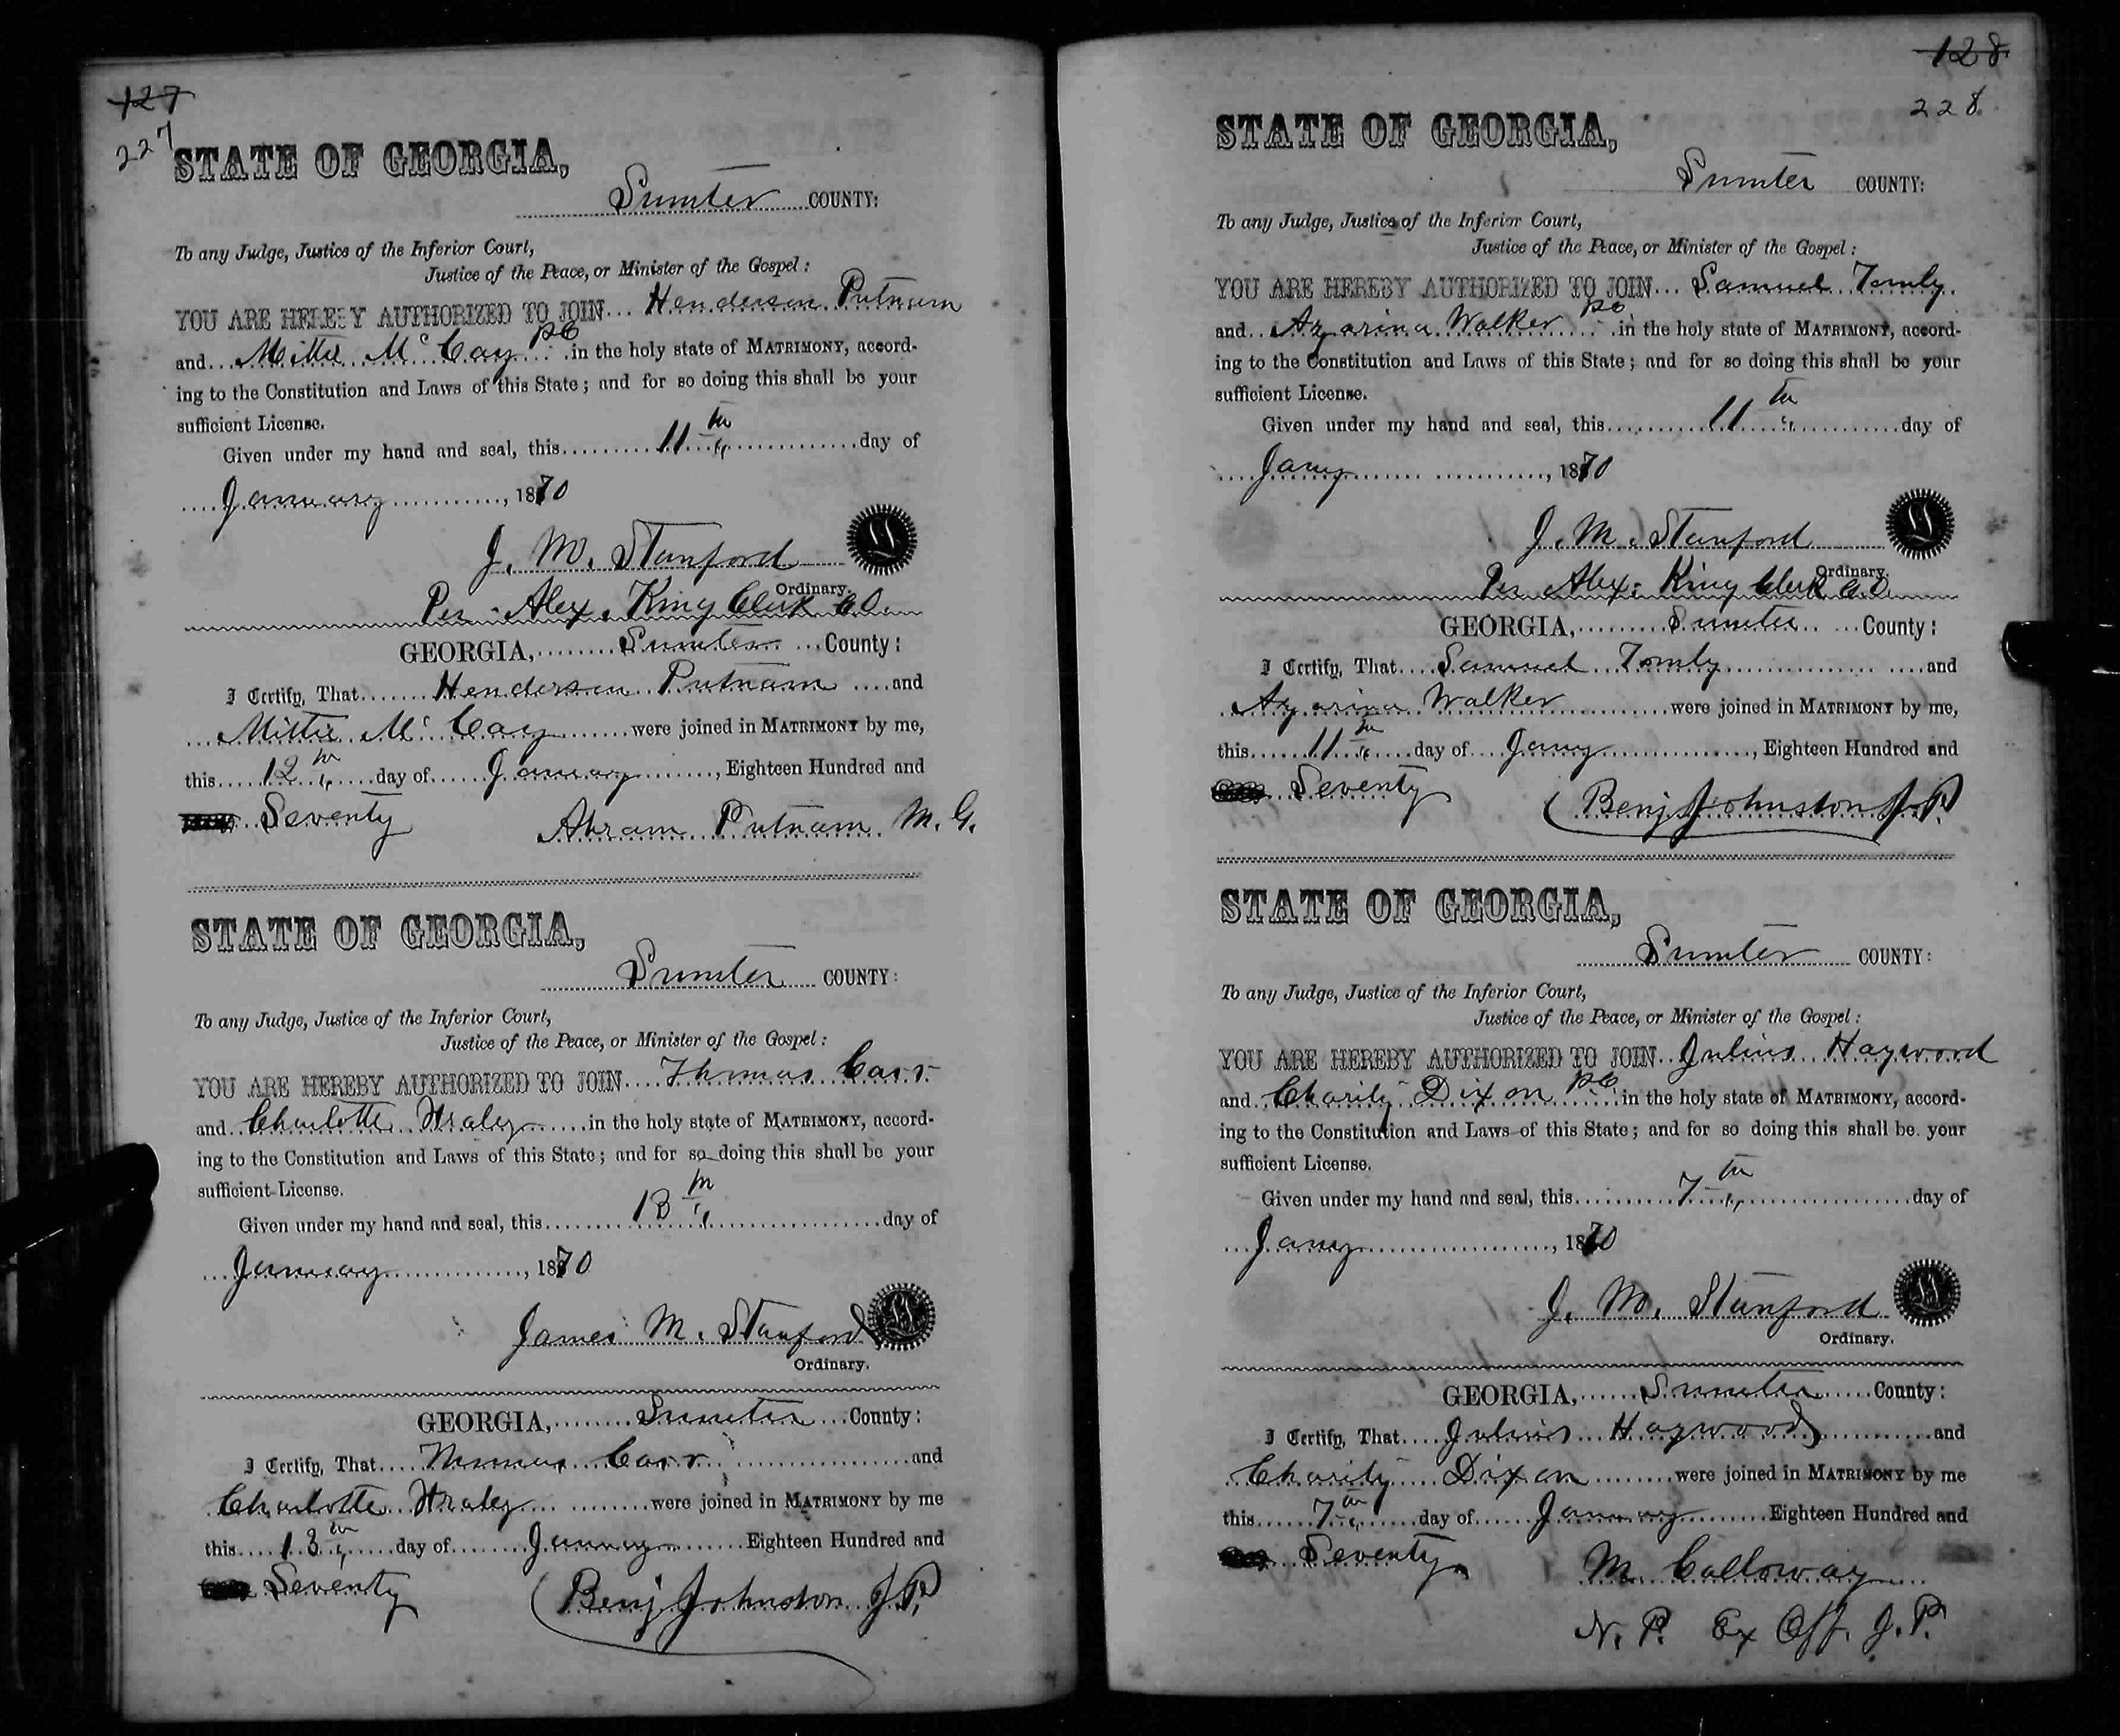 127
227
STATE OF GEORGIA,
Sumter COUNTY:
To any Judge, Justice of the Inferior Court,
Justice of the Peace, or Minister of the Gospel:
YOU ARE HEREBY AUTHORIZED TO JOIN Henderson Putnam
and Mittie McCay pc in the holy state of MATRIMONY, accord-
ing to the Constitution and Laws of this State; and for so doing this shall be your
sufficient License.
Given under my hand and seal, this 11th day of
January, 1870
J. M. Stanford
Ordinary.
Per Alex. King Clerk C.O.
GEORGIA, Sumter County:
I Certify, That Henderson Putnam and
Mittie McCay were joined in MATRIMONY by me,
this 12th day of January, Eighteen Hundred and
Seventy Abram Putnam M. G.
STATE OF GEORGIA,
Sumter COUNTY:
To any Judge, Justice of the Inferior Court,
Justice of the Peace, or Minister of the Gospel:
YOU ARE HEREBY AUTHORIZED TO JOIN Thomas Carr
and Charlotte in the holy state of MATRIMONY, accord-
ing to the Constitution and Laws of this State; and for so doing this shall be your
sufficient License.
Given under my hand and seal, this 13th day of
January, 1870
James M. Stanford
Ordinary.
GEORGIA, Sumter County:
I Certify, That Thomas Carr and
Charlotte were joined in MATRIMONY by me
this 13th day of January Eighteen Hundred and
Seventy Benj Johnston J.P.
128
228
STATE OF GEORGIA,
Sumter COUNTY:
To any Judge, Justice of the Inferior Court,
Justice of the Peace, or Minister of the Gospel:
YOU ARE HEREBY AUTHORIZED TO JOIN Samuel Tomly
and Azarina Walker pc in the holy state of MATRIMONY, accord-
ing to the Constitution and Laws of this State; and for so doing this shall be your
sufficient License.
Given under my hand and seal, this 11th day of
Jany, 1870
J. M. Stanford
Ordinary.
Per Alex. King Clerk C.O.
GEORGIA, Sumter County:
I Certify, That Samuel Tomly and
Azarina Walker were joined in MATRIMONY by me,
this 11th day of Jany, Eighteen Hundred and
Seventy Benj Johnston J.P.
STATE OF GEORGIA,
Sumter COUNTY:
To any Judge, Justice of the Inferior Court,
Justice of the Peace, or Minister of the Gospel:
YOU ARE HEREBY AUTHORIZED TO JOIN Julius Haywood
and Charity Dixon pc in the holy state of MATRIMONY, accord-
ing to the Constitution and Laws of this State; and for so doing this shall be your
sufficient License.
Given under my hand and seal, this 7th day of
Jany, 1870
J. M. Stanford
Ordinary.
GEORGIA, Sumter County:
I Certify, That Julius Haywood and
Charity Dixon were joined in MATRIMONY by me
this 7th day of January Eighteen Hundred and
Seventy. M. Calloway
N. P. Ex Off. J. P.